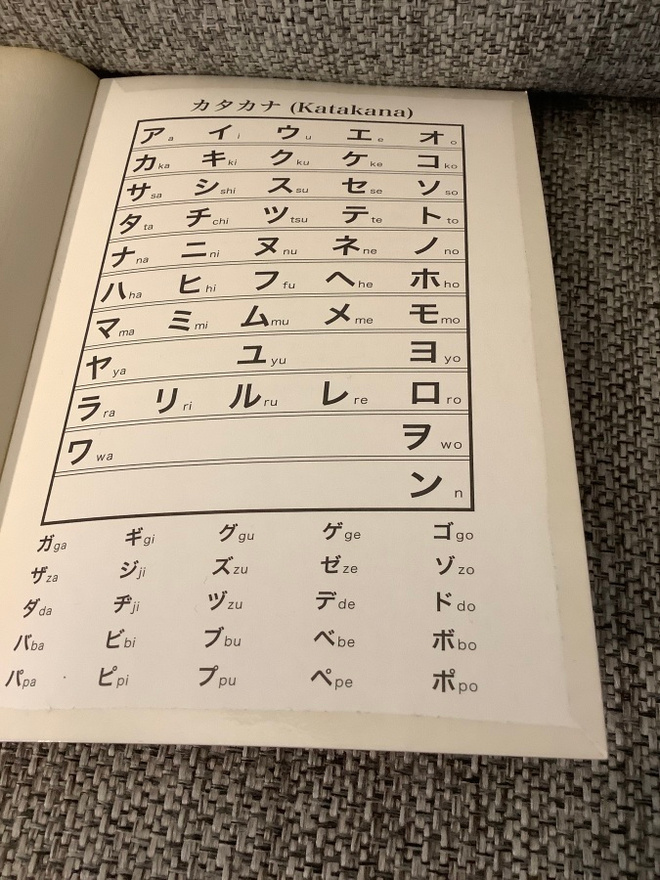 カタカナ (Katakana)
ア a イ i ウ u エ e オ o
カ ka キ ki ク ku ケ ke コ ko
サ sa シ shi ス su セ se ソ so
タ ta チ chi ツ tsu テ te ト to
ナ na ニ ni ヌ nu ネ ne ノ no
ハ ha ヒ hi フ fu ヘ he ホ ho
マ ma ミ mi ム mu メ me モ mo
ヤ ya ユ yu ヨ yo
ラ ra リ ri ル ru レ re ロ ro
ワ wa ヲ wo
ン n
ガ ga ギ gi グ gu ゲ ge ゴ go
ザ za ジ ji ズ zu ゼ ze ゾ zo
ダ da ヂ ji ヅ zu デ de ド do
バ ba ビ bi ブ bu ベ be ボ bo
パ pa ピ pi プ pu ペ pe ポ po